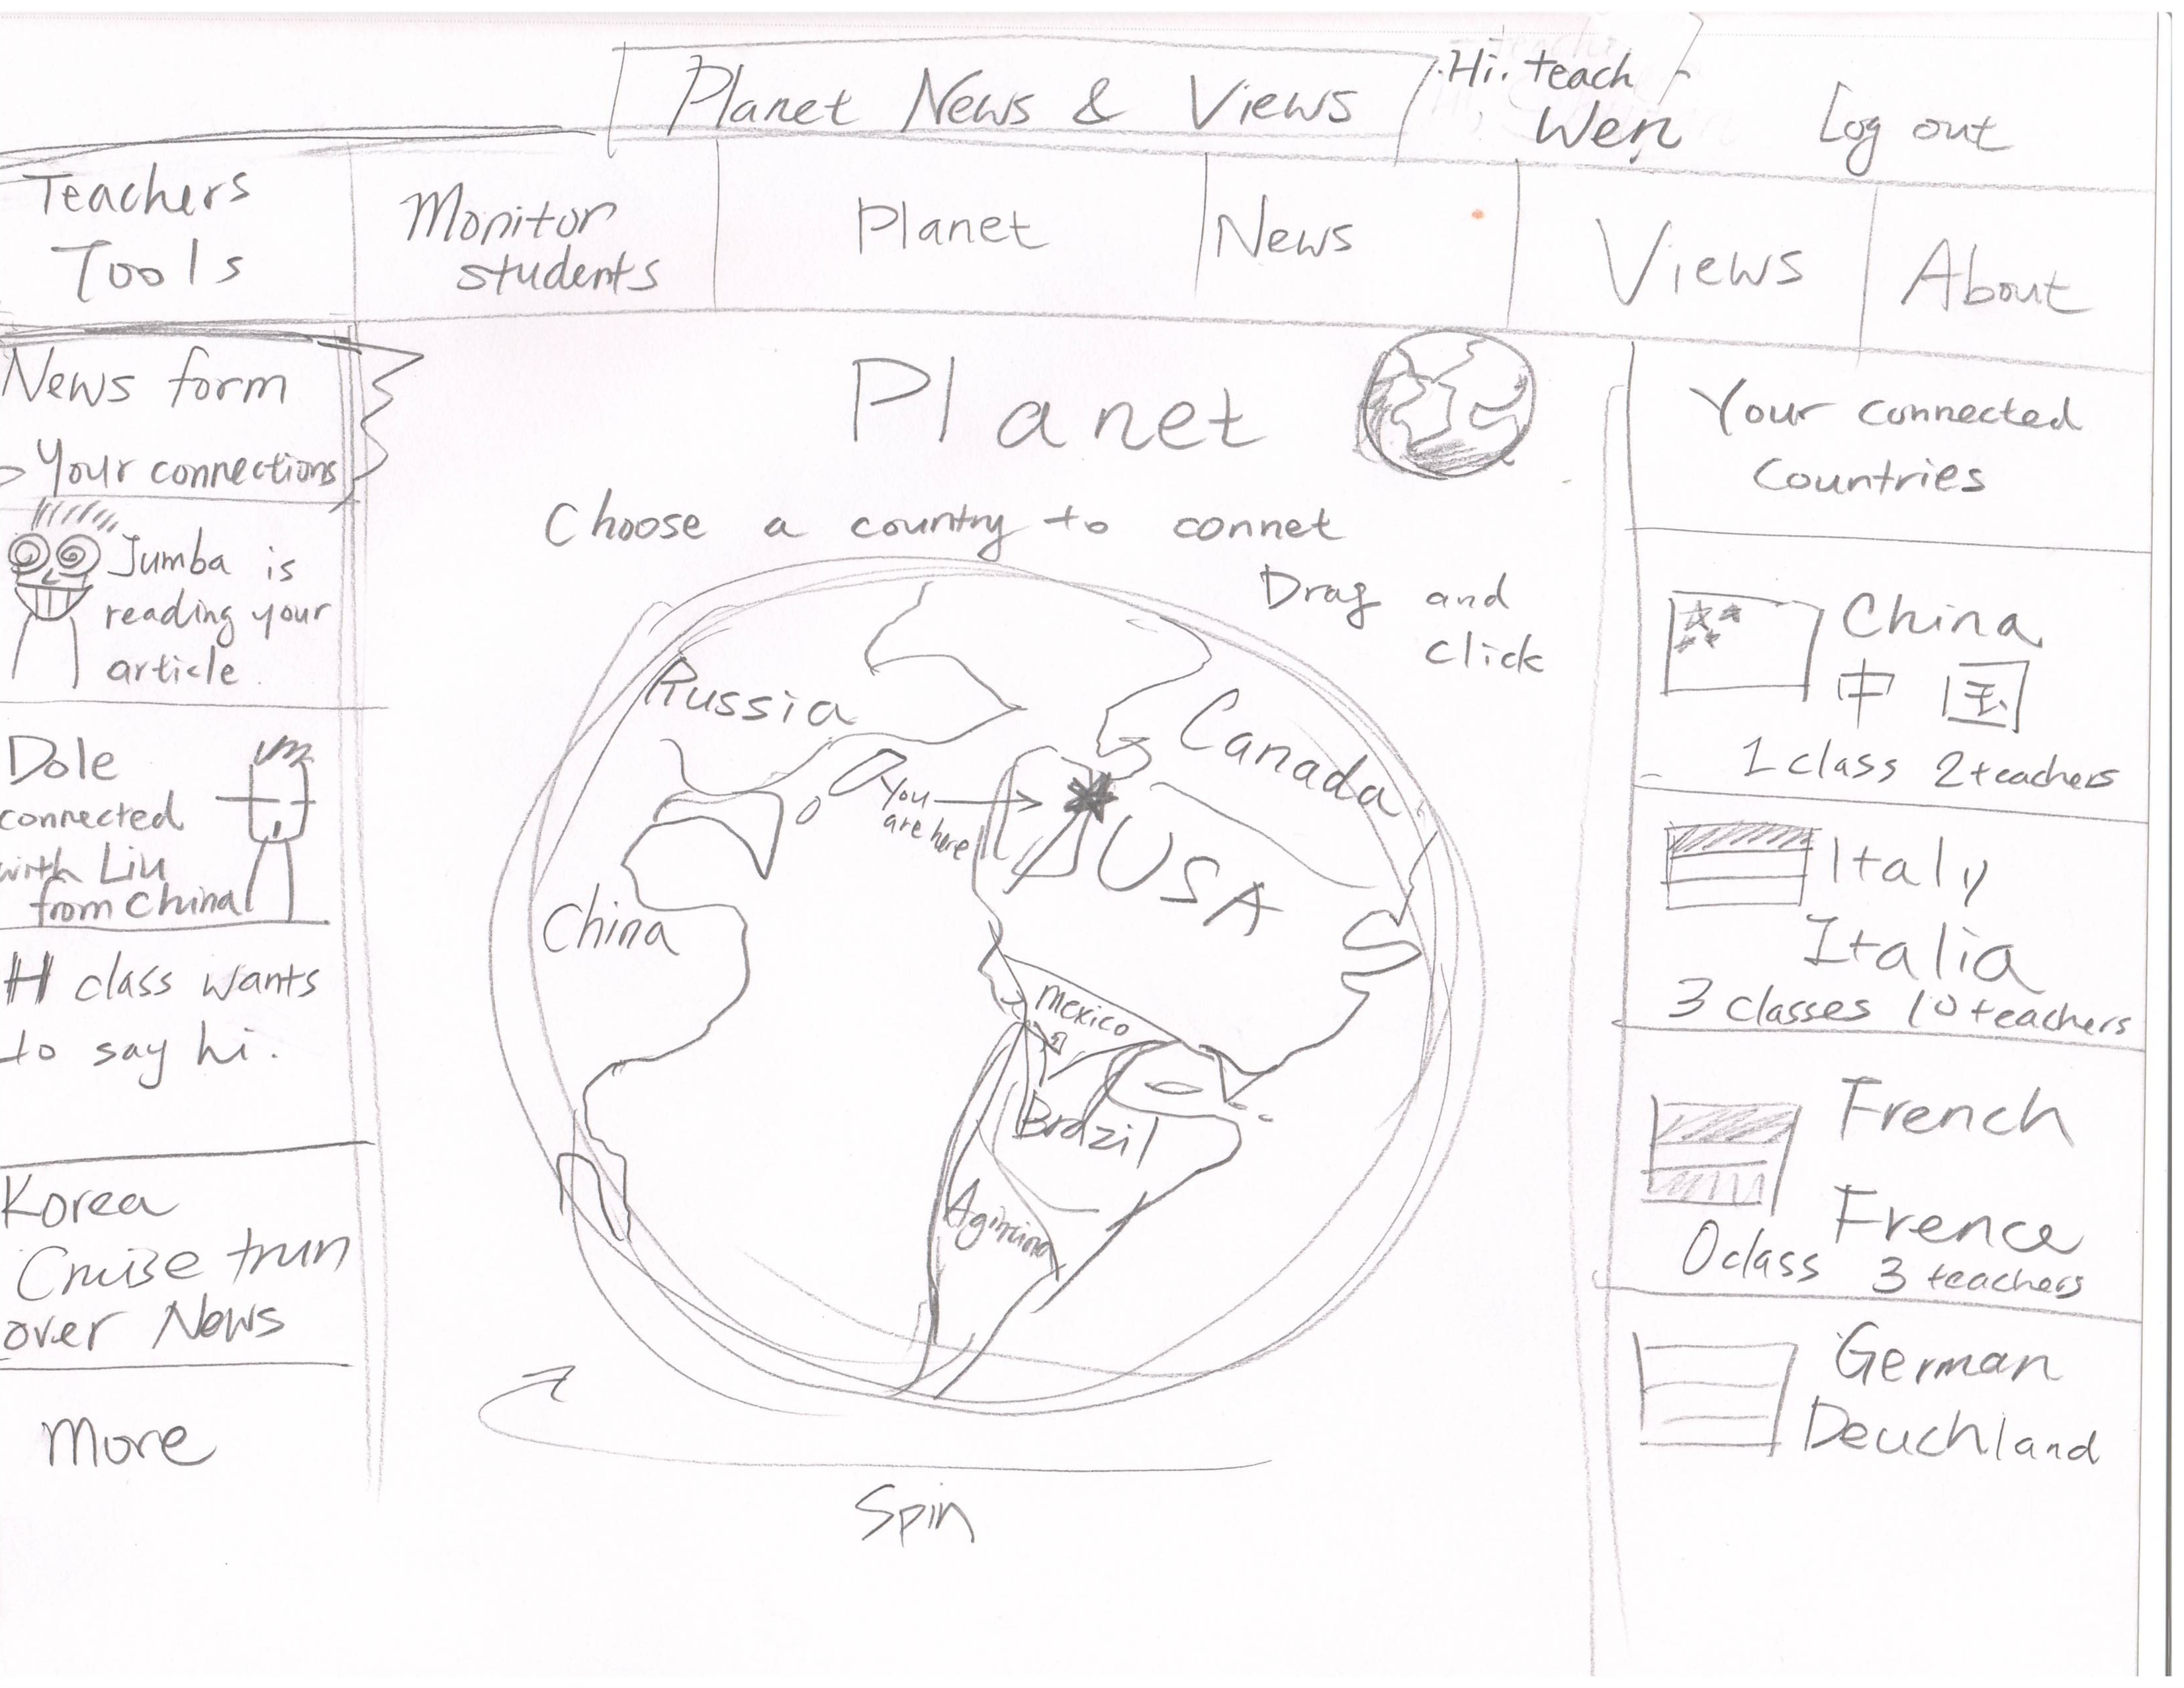 Planet News & Views
Hi. teach
Wen
Log out
Teachers
Tools
Monitor
students
Planet
News
Views
About
News form
Your connections
Jumba is
reading your
article.
Dole
connected
with Liu
from China
H class wants
to say hi.
Korea
Cruise trun
over News
More
Planet
Choose a country to connet
Drag and
click
Russia
Canada
You
are here
USA
China
Mexico
Brazil
Spin
Your connected
Countries
China
中国
1 class 2 teachers
Italy
Italia
3 classes 10 teachers
French
Frence
0 class 3 teachers
German
Deuchland